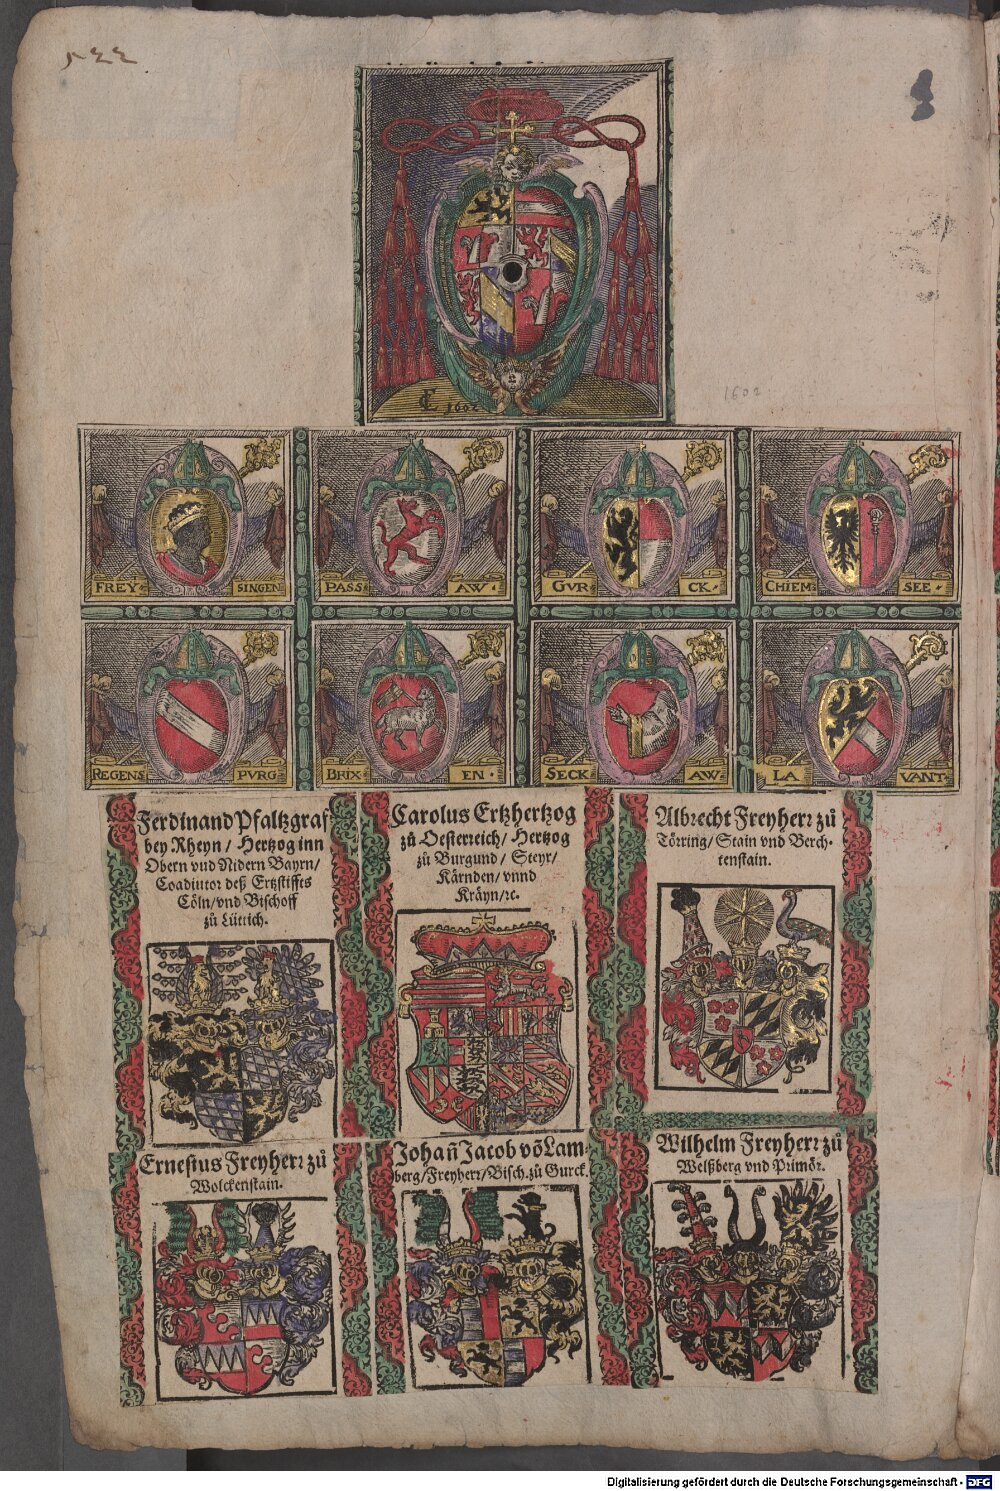 544
CE 1602
1602
FREY· SINGEN
PASS· AW·
GVR CK·
CHIEM· SEE·
REGENS PVRG
BRIX· EN·
SECK AW·
LA VANT·
Ferdinand Pfaltzgraf
bey Rheyn / Hertzog inn
Obern vnd Nidern Bayrn/
Coadiutor deß Ertzstiffts
Cöln/vnd Bischoff
zů Lüttich.
Carolus Ertzhertzog
zů Oesterreich/ Hertzog
zů Burgund/ Steyr/
Kärnden/ vnnd
Kräyn/ꝛc.
Albrecht Freyherꝛ zů
Törring/ Stain vnd Berch-
tenstain.
Ernestus Freyherꝛ zů
Wolckenstain.
Johañ Jacob võ Lam-
berg/Freyherꝛ/Bisch. zů Gurck.
Wilhelm Freyherꝛ zů
Welßberg vnd Primör.
Digitalisierung gefördert durch die Deutsche Forschungsgemeinschaft - DFG